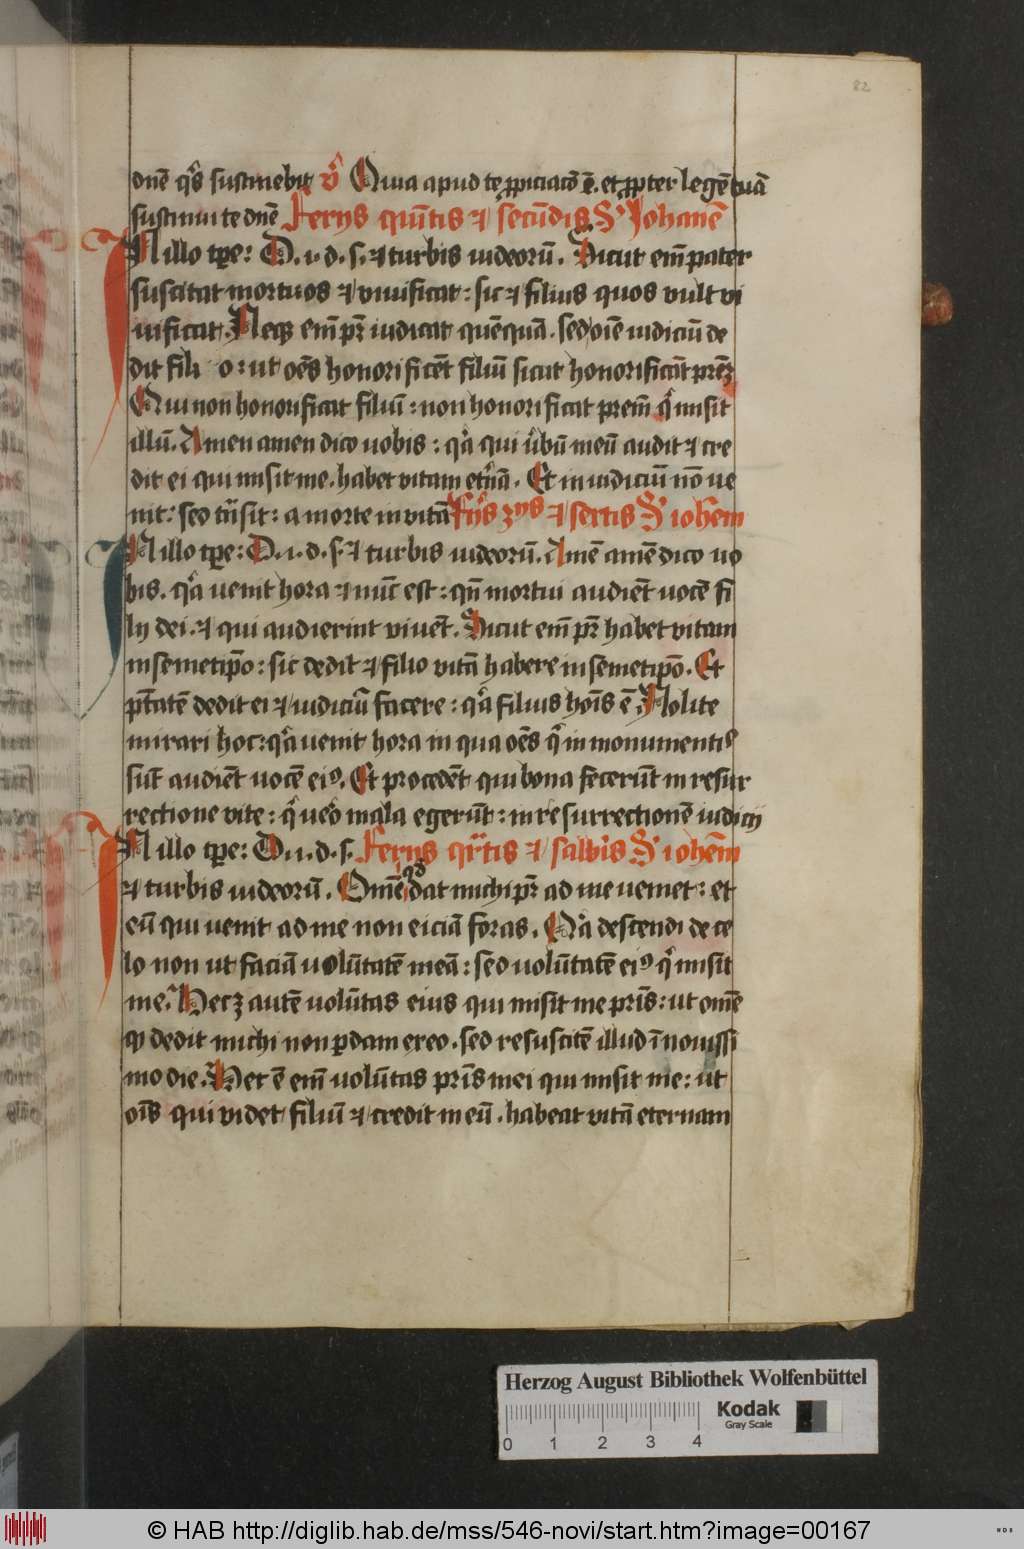 82
dn̄e q̊s sustinebit v̊ Quia apud te ꝓpiciac̄o ē. et ꝓpter legē tuā
sustinui te dn̄e Ferijs qui̅tis ⁊ secu̅dis S' Johānē
IN illo tp̄e: D. i. d. s. ⁊ turbis iudeoꝝ̄. Sicut em̄ pater
suscitat mortuos ⁊ viuificat: sic ⁊ filius quos vult vi
uificat. Neqꝫ em̄ pr̄ iudicat quēquā. sed oīe iudiciū de
dit fili o: ut oēs honorificēt filiū sicut honorificāt prēꝫ
Qui non honorificat filiū: non honorificat prem̄ q̇ misit
illū. Amen amen dico uobis: qȧ qui ůbū meū audit ⁊ cre
dit ei qui misit me. habet vitam et̊nā. Et in iudiciū nō ue
nit: sed tn̄sit: a morte in vitā Fijs ꝫijs ⁊ sextis S' ioh̄em
IN illo tp̄e: D. i. d. s. ⁊ turbis iudeoꝝ̄. Amē amē dico uo
bis. qȧ uenit hora ⁊ nūc est: qn̄ mortui audiēt uocē fi
lij dei. ⁊ qui audierint viuēt. Sicut em̄ pr̄ habet vitam
in semetip̄o: sic dedit ⁊ filio vitā habere in semetip̄o. Et
ptātē dedit ei ⁊ iudiciū facere: qȧ filius hoīs ē. Nolite
mirari hoc: qȧ uenit hora in qua oēs q̇ in monumentꝰ
sūt audiēt uocē eiꝰ. Et procedēt qui bona fecerūt in resur
rectione vite: q̇ ueo̊ mala egerūt: in resurrectionē iudicij
IN illo tp̄e: D i. d. s. Ferijs qr̄tis ⁊ sabb̄is S' ioh̄em
⁊ turbis iudeoꝝ̄. Omē qd dat michi pr̄ ad me ueniet: et
eū qui uenit ad me non eiciā foras. Qȧ descendi de ce
lo non ut faciā uolūtatē meā: sed uolūtatē eiꝰ q̇ misit
me. Hec ꝫ autē uolūtas eius qui misit me pr̄is: ut omē
qꝫ dedit michi non ꝑdam ex eo. sed resuscitē illud ī nouissi
mo die. Hec ē em̄ uolūtas pr̄is mei qui misit me: ut
oīs qui videt filiū ⁊ credit in eū. habeat vitā eternam
Herzog August Bibliothek Wolfenbüttel
Kodak
Gray Scale
0 1 2 3 4
© HAB http://diglib.hab.de/mss/546-novi/start.htm?image=00167